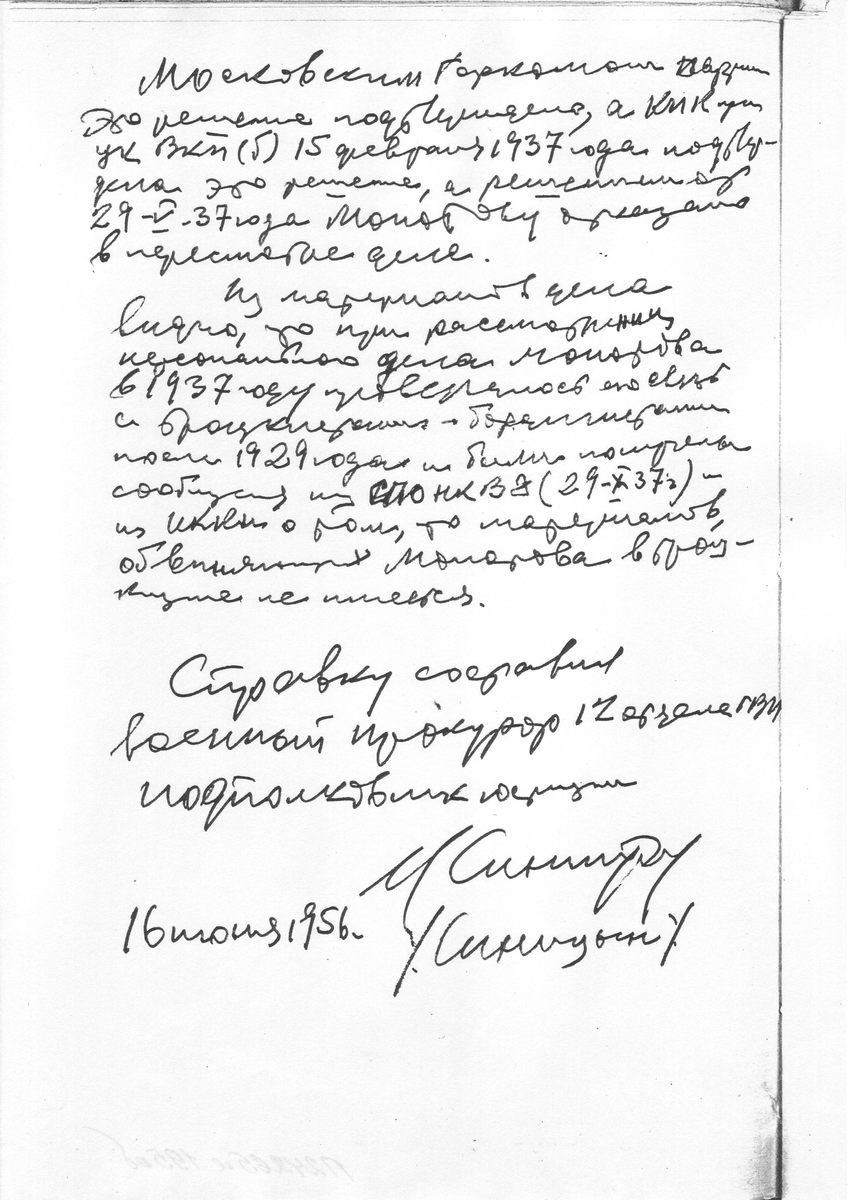 Московским Горкомом партии
это решение подтверждено, а КПК при
ЦК ВКП(б) 15 февраля 1937 года подтвер-
дила это решение, а решением от
29-V-37 года отказано
в пересмотре дела.
Из материалов дела
видно, что при рассмотрении
персонального дела
в 1937 году проверялось его связь
с троцкистами -
после 1929 года и были получены
сообщения из СПО НКВД (29-X-37г) и
из ИККИ о том, что материалов,
обвиняющих в троц-
кизме не имеется.
Справку составил
военный прокурор 12 отдела ГВП
подполковник юстиции
(Синицын)
16 июня 1956.